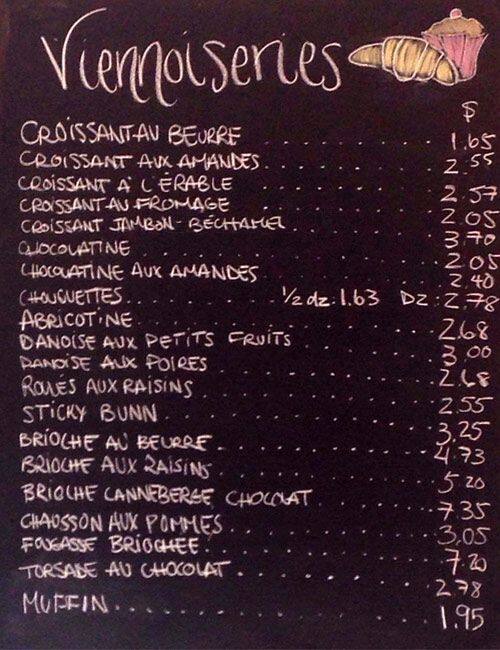 Viennoiseries
$
CROISSANT AU BEURRE ........ 1.65
CROISSANT AUX AMANDES ........ 2.55
CROISSANT À L'ÉRABLE ........ 2.57
CROISSANT AU FROMAGE ........ 2.05
CROISSANT JAMBON-BÉCHAMEL ........ 3.70
CHOCOLATINE ........ 2.05
CHOCOLATINE AUX AMANDES ........ 2.40
CHOUQUETTES ........ 1/2 dz: 1.63 DZ: 2.78
ABRICOTINE ........ 2.68
DANOISE AUX PETITS FRUITS ........ 3.00
DANOISE AUX POIRES ........ 2.68
ROULÉS AUX RAISINS ........ 2.55
STICKY BUNN ........ 3.25
BRIOCHE AU BEURRE ........ 4.73
BRIOCHE AUX RAISINS ........ 5.20
BRIOCHE CANNEBERGE CHOCOLAT ........ 7.35
CHAUSSON AUX POMMES ........ 3.05
FOUGASSE BRIOCHÉE ........ 7.20
TORSADE AU CHOCOLAT ........ 2.78
MUFFIN ........ 1.95